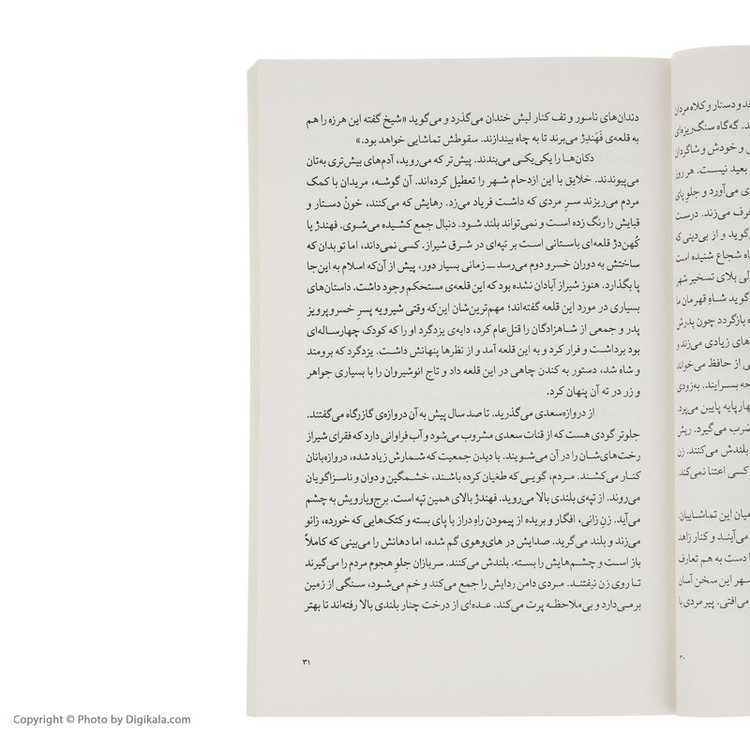 دندان‌های ناسور و تف کنار لبش خندان می‌گذرد و می‌گوید «شیخ گفته این هرزه را هم
به قلعه‌ی فَهَندِژ می‌برند تا به چاه بیندازند. سقوطش تماشایی خواهد بود.»
دکان‌ها را یکی‌یکی می‌بندند. پیش‌تر که می‌روید، آدم‌های بیش‌تری به‌تان
می‌پیوندند. خلایق با این ازدحام شهر را تعطیل کرده‌اند. آن گوشه، مریدان با کمک
مردم می‌ریزند سرِ مردی که داشت فریاد می‌زد. رهایش که می‌کنند، خونْ دستار و
قبایش را رنگ زده است و نمی‌تواند بلند شود. دنبال جمع کشیده می‌شوی. فهندژ یا
کُهن‌دژ قلعه‌ای باستانی است بر تپه‌ای در شرق شیراز. کسی نمی‌داند، اما تو بدان که
ساختش به دوران خسرو دوم می‌رسد ــ زمانی بسیار دور، پیش از آن‌که اسلام به این‌جا
پا بگذارد. هنوز شیراز آبادان نشده بود که این قلعه‌ی مستحکم وجود داشت. داستان‌های
بسیاری در مورد این قلعه گفته‌اند؛ مهم‌ترین‌شان این‌که وقتی شیرویه پسرِ خسروپرویز
پدر و جمعی از شاهزادگان را قتل‌عام کرد، دایه‌ی یزدگرد او را که کودک چهارساله‌ای
بود برداشت و فرار کرد و به این قلعه آمد و از نظرها پنهانش داشت. یزدگرد که برومند
و شاه شد، دستور به کندن چاهی در این قلعه داد و تاج انوشیروان را با بسیاری جواهر
و زر در ته آن پنهان کرد.
از دروازه‌سعدی می‌گذرید. تا صد سال پیش به آن دروازه‌ی گازرگاه می‌گفتند.
جلوتر گودی هست که از قنات سعدی مشروب می‌شود و آب فراوانی دارد که فقرای شیراز
رخت‌های‌شان را در آن می‌شویند. با دیدن جمعیت که شمارش زیاد شده، دروازه‌بانان
کنار می‌کشند. مردم، گویی که طغیان کرده باشند، خشمگین و دوان و ناسزاگویان
می‌روند. از تپه‌ی بلندی بالا می‌روید. فهندژ بالای همین تپه است. برج‌وبارویش به چشم
می‌آید. زنِ زانی، افگار و بریده از پیمودن راه دراز با پای بسته و کتک‌هایی که خورده، زانو
می‌زند و بلند می‌گرید. صدایش در های‌وهوی گم شده، اما دهانش را می‌بینی که کاملاً
باز است و چشم‌هایش را بسته. بلندش می‌کنند. سربازان جلوِ هجوم مردم را می‌گیرند
تا روی زن نیفتند. مردی دامن ردایش را جمع می‌کند و خم می‌شود، سنگی از زمین
برمی‌دارد و بی‌ملاحظه پرت می‌کند. عده‌ای از درخت چنار بلندی بالا رفته‌اند تا بهتر
۳۱
و دستار و کلاه مردان
گه‌گاه سنگ‌ریزه‌ای
و خودش و شاگردان
بعید نیست. هر روز
می‌آورد و جلوِ پای
می‌زند. درست
و از بی‌دینی که
شجاع شنیده است
بلای تسخیر شهر
شاهِ قهرمان ما
بازگردد چون پدرش
زیادی می‌زند و
از حافظ می‌خواند
بسرایند. به‌زودی
پایین می‌پرد
می‌گیرد. ریش
بلندش می‌کنند. زن
کسی اعتنا نمی‌کند
این تماشاییان
می‌آیند و کنار زاهد
دست به هم تعارف
این سخن آسان
می‌افتی. پیر مردی با
۳۰
Copyright © Photo by Digikala.com